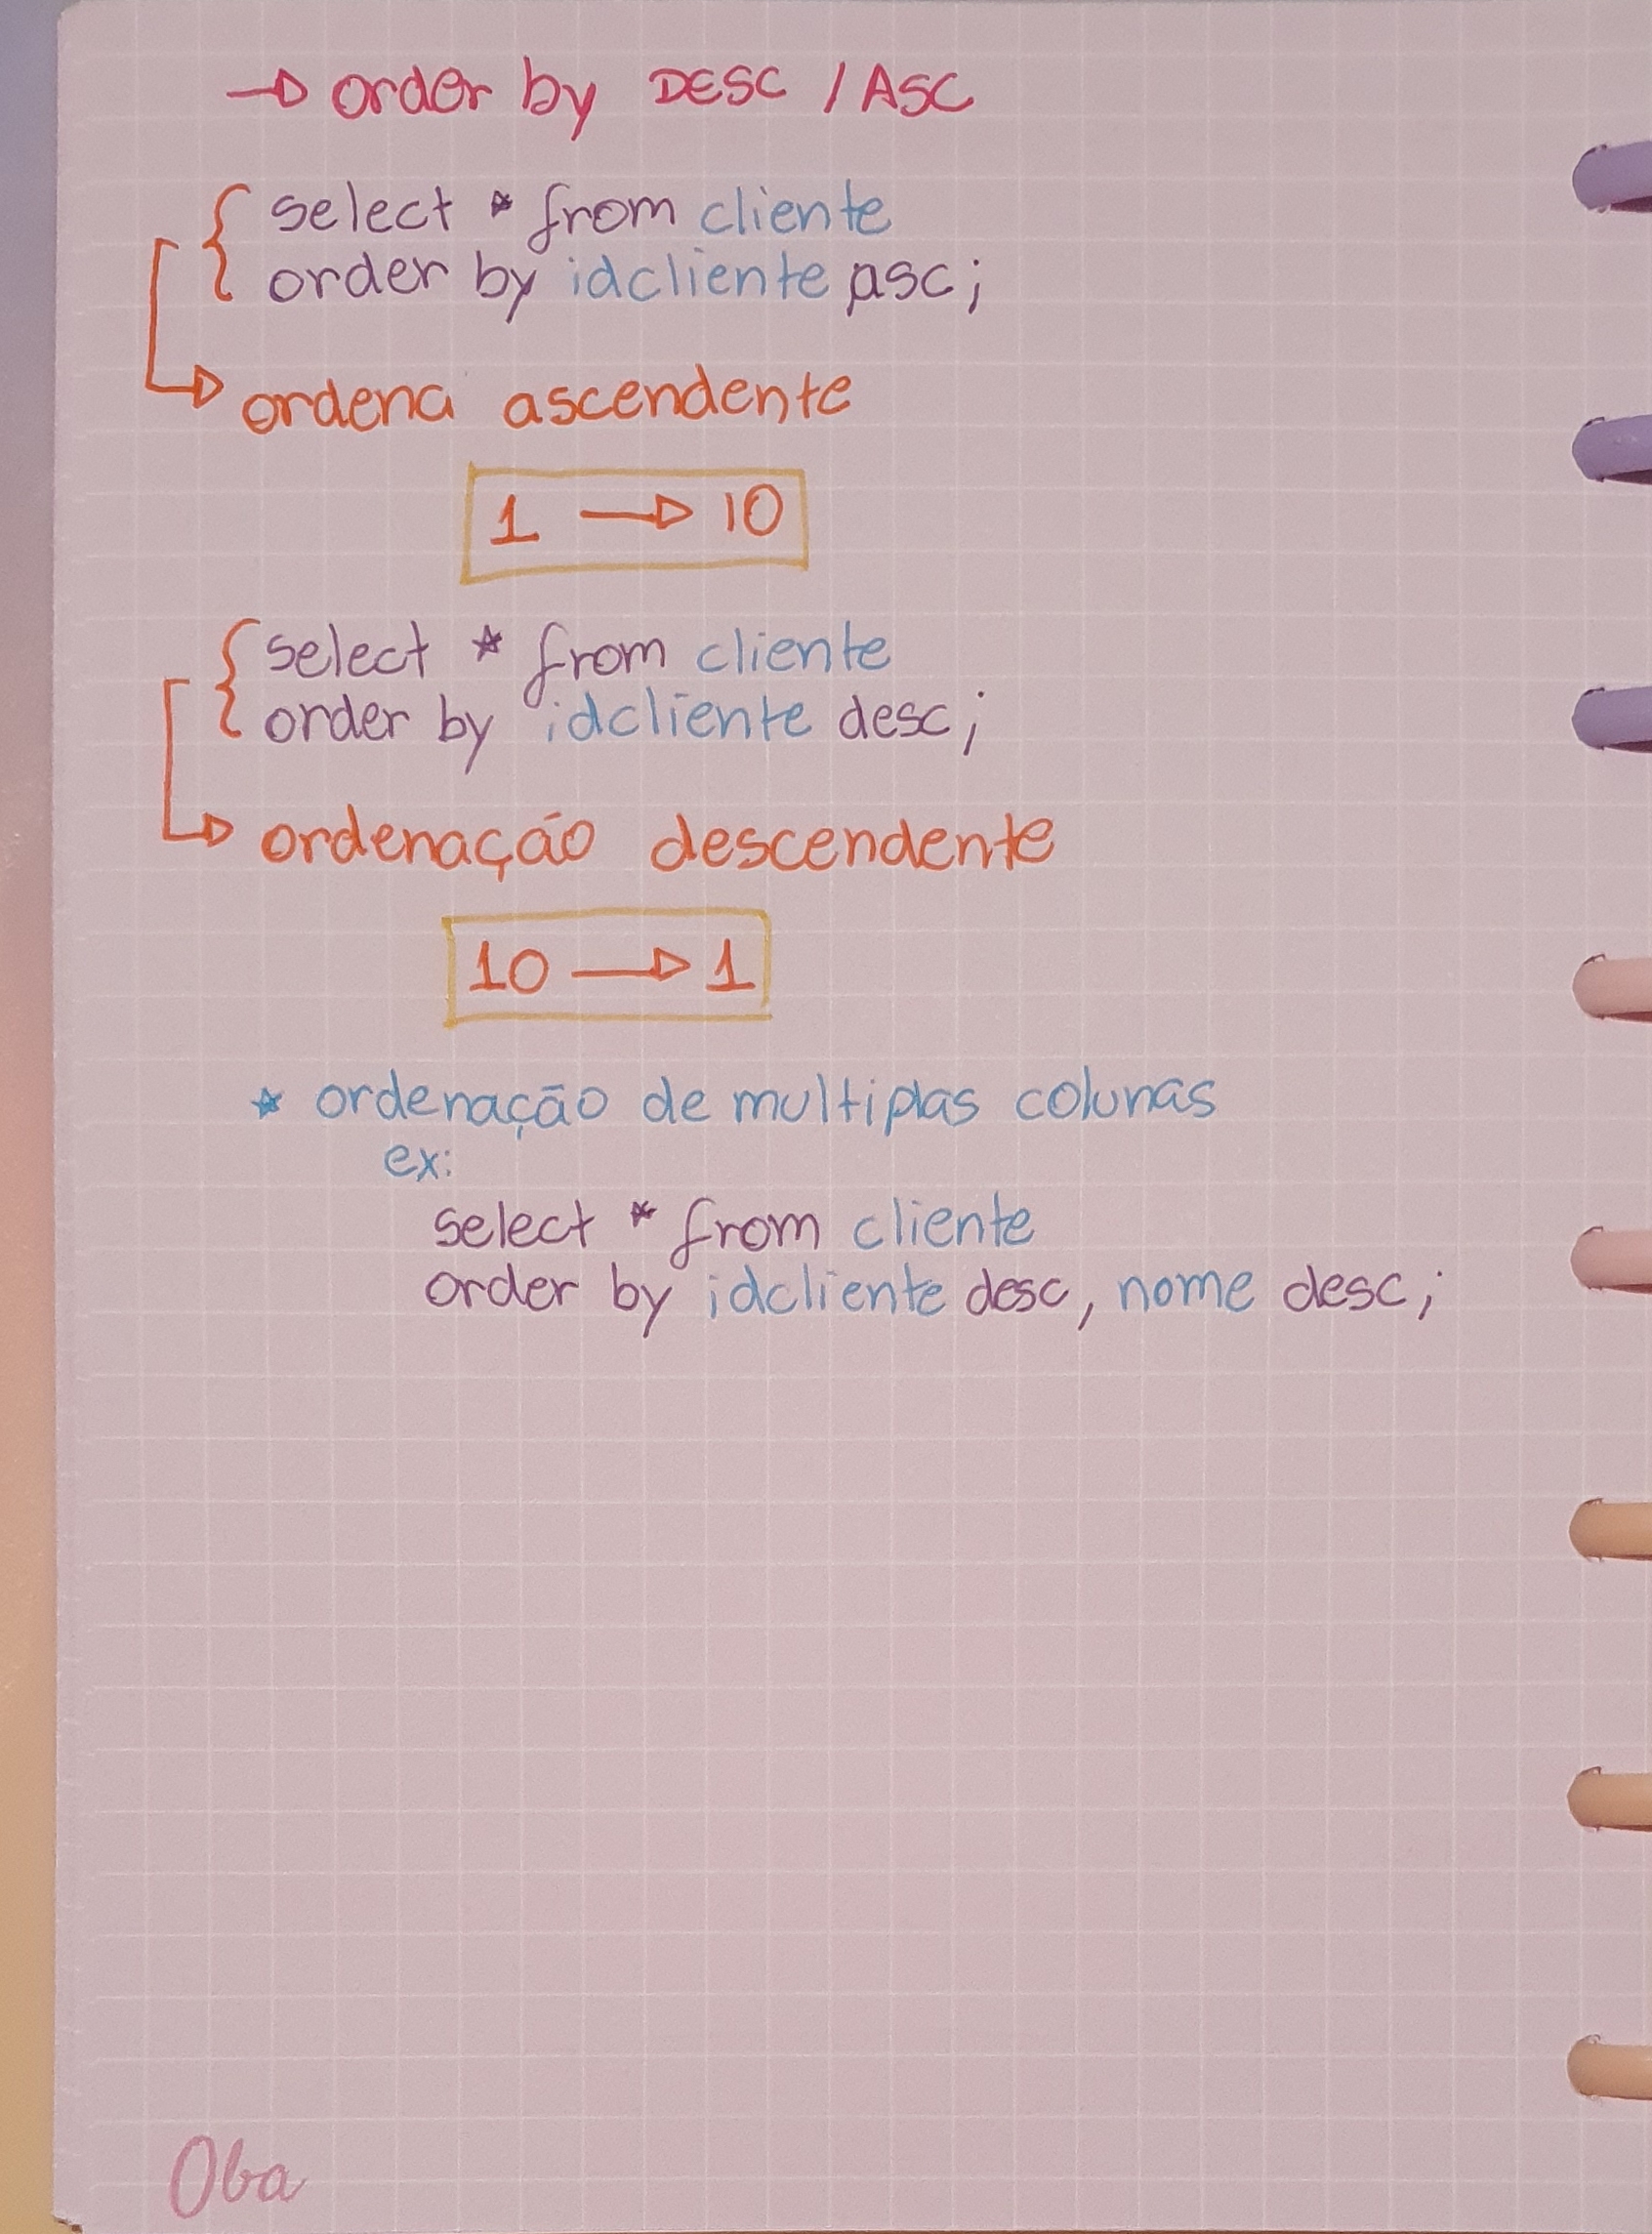 → order by DESC / ASC
select * from cliente
order by idcliente asc;
ordena ascendente
1 → 10
select * from cliente
order by idcliente desc;
ordenação descendente
10 → 1
* ordenação de multiplas colunas
ex:
select * from cliente
order by idcliente desc, nome desc;
Oba